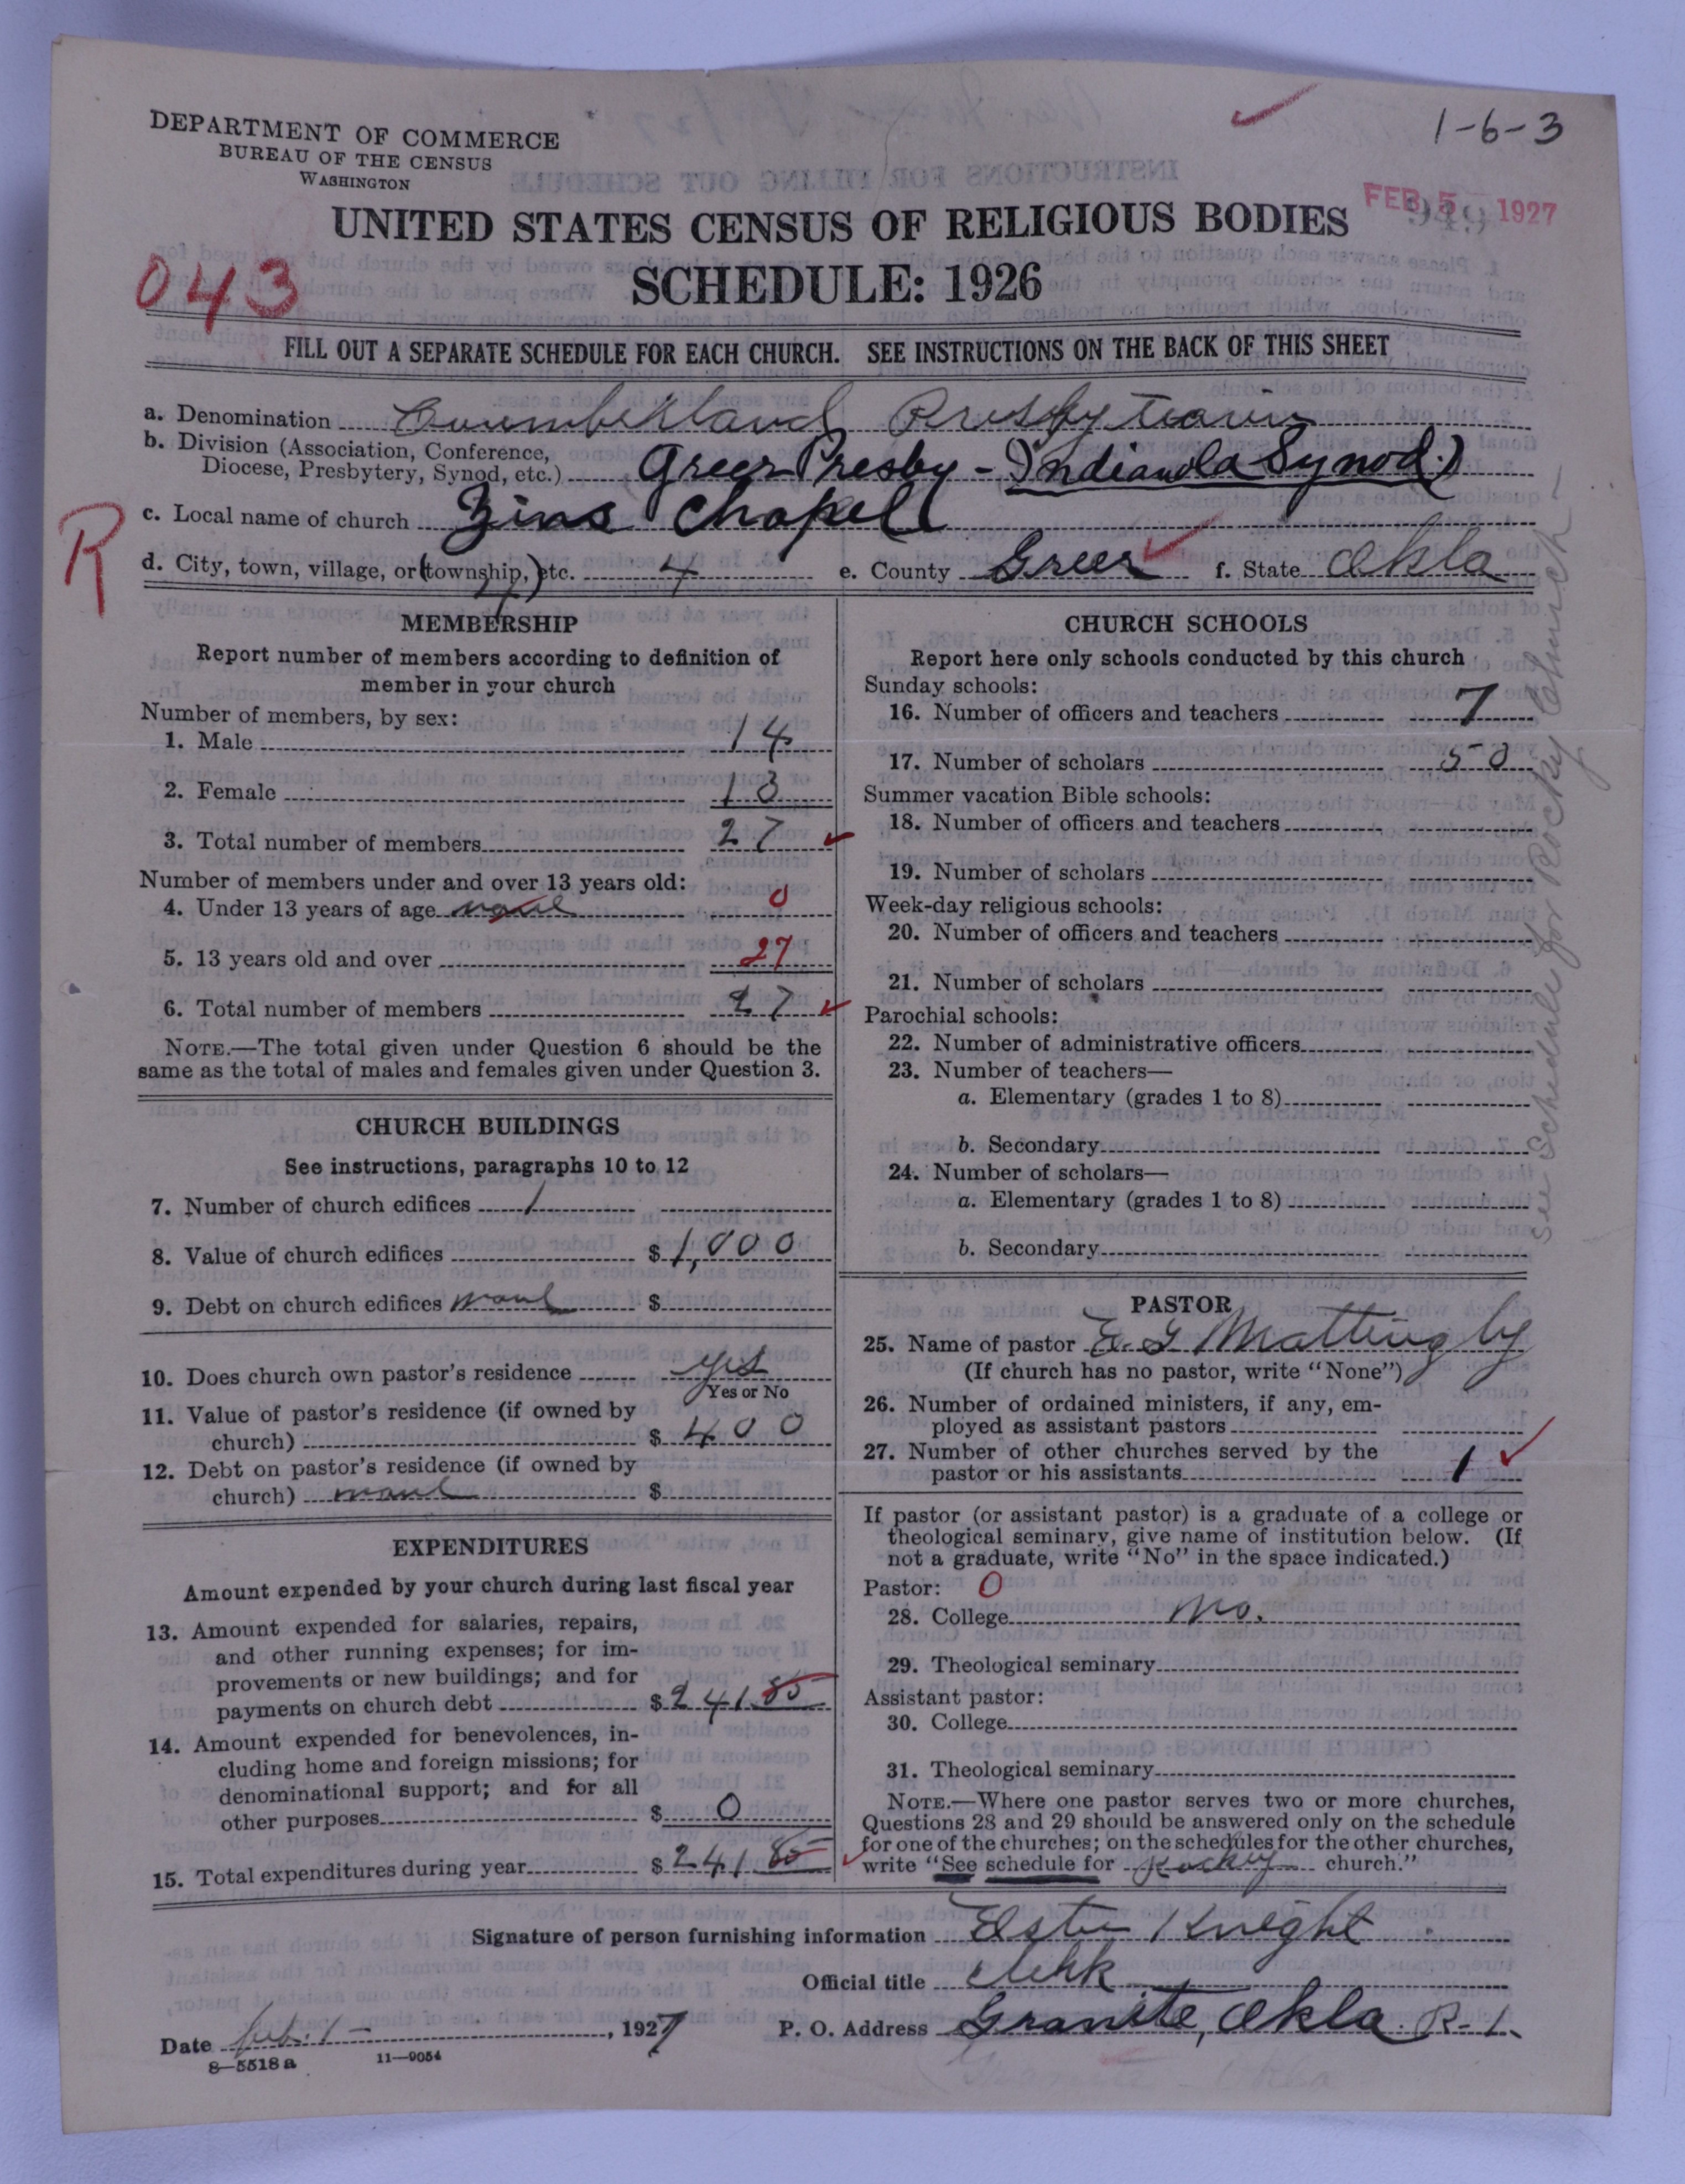 1-6-3
DEPARTMENT OF COMMERCE
BUREAU OF THE CENSUS
WASHINGTON
FEB 5 1927
949
UNITED STATES CENSUS OF RELIGIOUS BODIES
043
SCHEDULE: 1926
FILL OUT A SEPARATE SCHEDULE FOR EACH CHURCH. SEE INSTRUCTIONS ON THE BACK OF THIS SHEET
a. Denomination Cumberland Presbyterian
b. Division (Association, Conference,
Diocese, Presbytery, Synod, etc.) Greer Presby - Indianola Synod)
R
c. Local name of church Zions Chapell
d. City, town, village, or (township,) etc. 4 e. County Greer f. State Okla
MEMBERSHIP
Report number of members according to definition of
member in your church
Number of members, by sex:
1. Male 14
2. Female 13
3. Total number of members 27
Number of members under and over 13 years old:
4. Under 13 years of age none 0
5. 13 years old and over 27
6. Total number of members 27
NOTE.—The total given under Question 6 should be the
same as the total of males and females given under Question 3.
CHURCH BUILDINGS
See instructions, paragraphs 10 to 12
7. Number of church edifices 1
8. Value of church edifices $1,000
9. Debt on church edifices none $
10. Does church own pastor's residence yes
Yes or No
11. Value of pastor's residence (if owned by
church) $ 400
12. Debt on pastor's residence (if owned by
church) none $
EXPENDITURES
Amount expended by your church during last fiscal year
13. Amount expended for salaries, repairs,
and other running expenses; for im-
provements or new buildings; and for
payments on church debt $241.85
14. Amount expended for benevolences, in-
cluding home and foreign missions; for
denominational support; and for all
other purposes $ 0
15. Total expenditures during year $241.85
CHURCH SCHOOLS
Report here only schools conducted by this church
Sunday schools:
16. Number of officers and teachers 7
17. Number of scholars 50
Summer vacation Bible schools:
18. Number of officers and teachers
19. Number of scholars
Week-day religious schools:
20. Number of officers and teachers
21. Number of scholars
Parochial schools:
22. Number of administrative officers
23. Number of teachers—
a. Elementary (grades 1 to 8)
b. Secondary
24. Number of scholars—
a. Elementary (grades 1 to 8)
b. Secondary
PASTOR
25. Name of pastor E. G Mattingly
(If church has no pastor, write "None")
26. Number of ordained ministers, if any, em-
ployed as assistant pastors
27. Number of other churches served by the
pastor or his assistants 1
If pastor (or assistant pastor) is a graduate of a college or
theological seminary, give name of institution below. (If
not a graduate, write "No" in the space indicated.)
Pastor: 0
28. College no.
29. Theological seminary
Assistant pastor:
30. College
31. Theological seminary
NOTE.—Where one pastor serves two or more churches,
Questions 28 and 29 should be answered only on the schedule
for one of the churches; on the schedules for the other churches,
write "See schedule for Rocky church."
See Schedule for Rocky Church-
Signature of person furnishing information Ester Knight
Official title Clerk
Date Feb. 1 -, 1927 P. O. Address Granite, Okla. R-1.
8—5518 a 11—9054